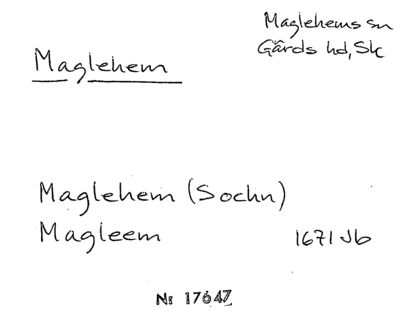 Maglehems sn
Gärds hd, Sk
Maglehem
Maglehem (Sochn)
Magleem 1671 Jb
No 17647